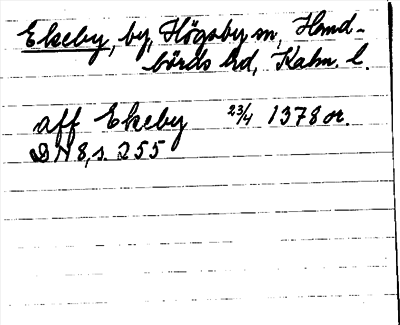 Ekeby, by, Högsby sn, Hand-
börds hd, Kalm. l.
aff Ekeby 23/4 1378 or.
DN 8, s. 255